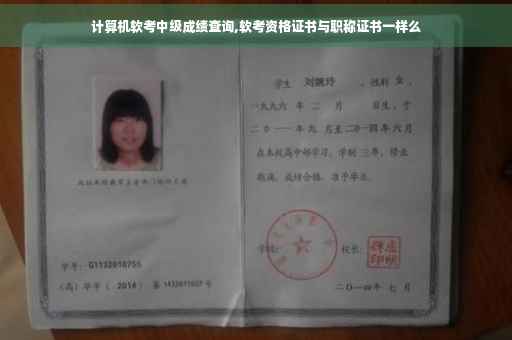 计算机软考中级成绩查询,软考资格证书与职称证书一样么
学生 刘婉玲 ，性别 女 ，
一九九六 年 二 月 日生，于
二〇一一年九 月至二〇一四年六月
在本校高中部学习，学制 三年，修业
期满，成绩合格，准予毕业。
学校： 校长：
学号：G1132010755
(高) 毕字 ( 2014 ) 第 1432011007 号
二〇一四年 七 月